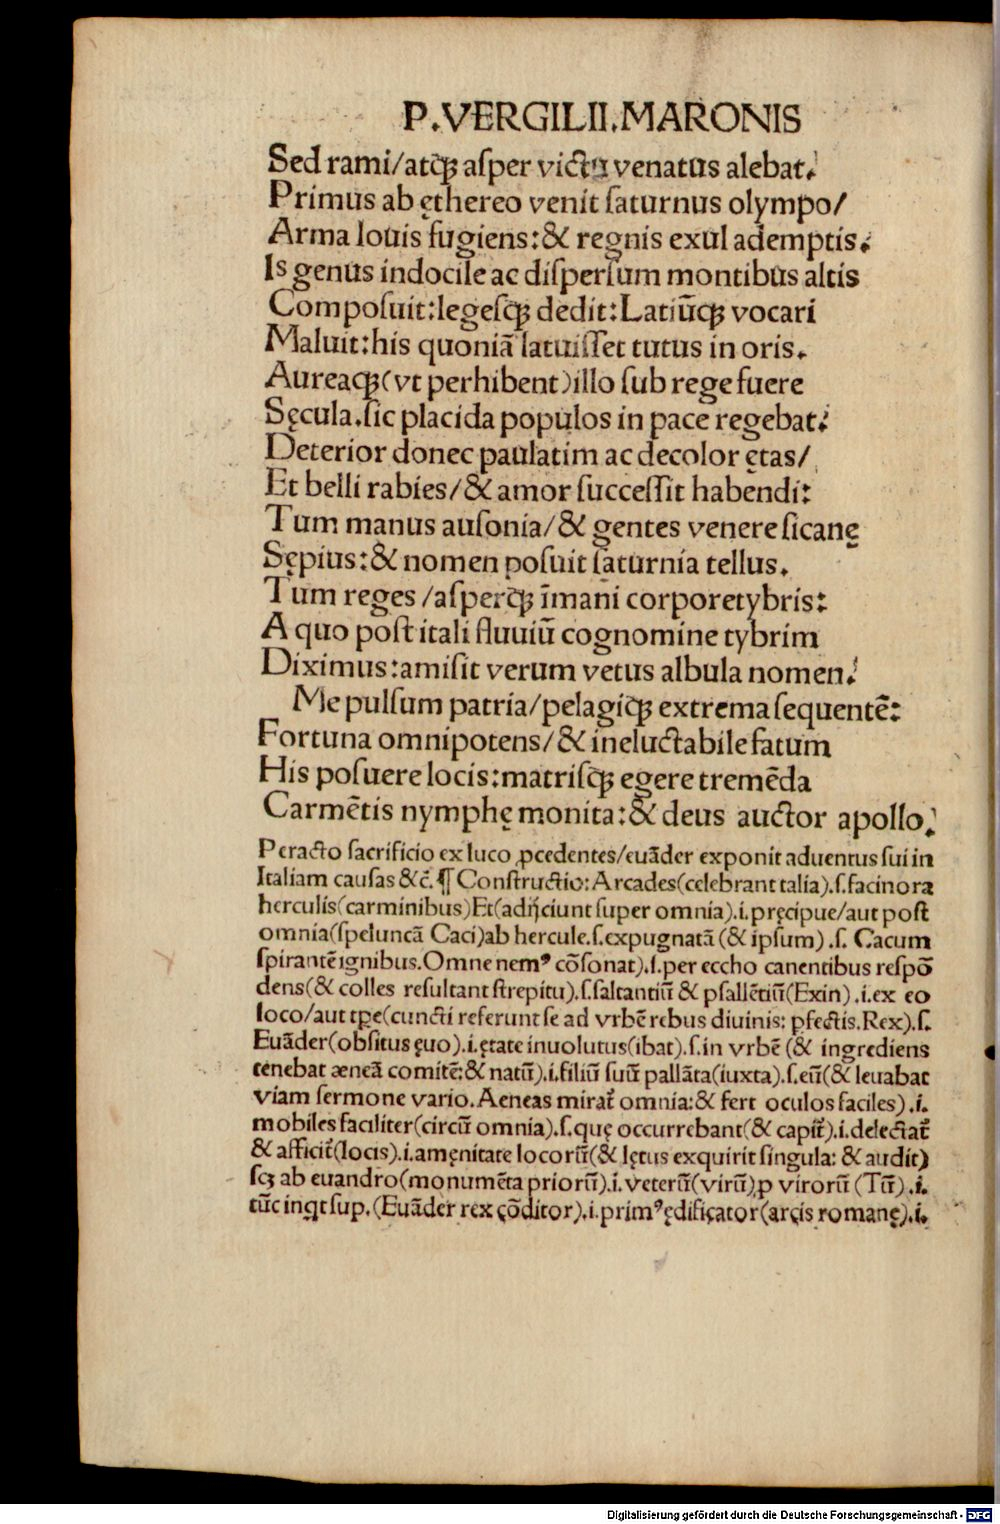 P.VERGILII.MARONIS
Sed rami/atq́ꝫ aſper victu venatus alebat.
Primus ab ęthereo venit ſaturnus olympo/
Arma Iouis fugiens:& regnis exul ademptis.
Is genus indocile ac diſperſum montibus altis
Compoſuit:legeſq́ꝫ dedit:Latiūq́ꝫ vocari
Maluit:his quoniā latuiſſet tutus in oris.
Aureaq́ꝫ(vt perhibent)illo ſub rege fuere
Sęcula.ſic placida populos in pace regebat.
Deterior donec paulatim ac decolor ętas/
Et belli rabies/& amor ſucceſſit habendi:
Tum manus auſonia/& gentes venere ſicanę
Sępius:& nomen poſuit ſaturnia tellus.
Tum reges /aſperq́ꝫ īmani corpore tybris:
A quo poſt itali fluuiū cognomine tybrim
Diximus:amiſit verum vetus albula nomen.
Me pulſum patria/pelagiq́ꝫ extrema ſequentē:
Fortuna omnipotens/& ineluctabile fatum
His poſuere locis:matriſq́ꝫ egere tremēda
Carmētis nymphę monita:& deus auctor apollo.
Peracto ſacrificio ex luco ꝓcedentes/euāder exponit aduentus ſui in
Italiam cauſas &c̄.¶ Conſtructio:Arcades(celebrant talia).ſ.facinora
herculis(carminibus)Et(adijciunt ſuper omnia).i.pręcipue/aut poſt
omnia(ſpeluncā Caci)ab hercule.ſ.expugnatā(& ipſum).ſ. Cacum
ſpirantē ignibus.Omne nemꝰ cōſonat).ſ.per eccho canentibus reſpō
dens(& colles reſultant ſtrepitu).ſ.ſaltantiū & pſallētiū(Exin).i.ex eo
loco/aut tꝑe(cuncti referunt ſe ad vrbē rebus diuinis: ꝑfectis.Rex).ſ.
Euāder(obſitus ęuo).i.ętate inuolutus(ibat).ſ.in vrbē (& ingrediens
tenebat æneā comitē:& natū).i.filiū ſuū pallāta(iuxta).ſ.eū(& leuabat
viam ſermone vario.Aeneas mirat᷑ omnia:& fert oculos faciles).i.
mobiles faciliter(circū omnia).ſ.quę occurrebant(& capit᷑).i.delectat᷑
& afficit᷑(locis).i.amęnitate locorū(& lętus exquirit ſingula: & audit)
ſcꝫ ab euandro(monumēta priorū).i.veterū(virū)ꝓ virorū (Tū).i.
tūc inqͭ ſup.(Euāder rex cōditor).i.primꝰ ędificator(arcis romanę).i.
Digitalisierung gefördert durch die Deutsche Forschungsgemeinschaft - DFG